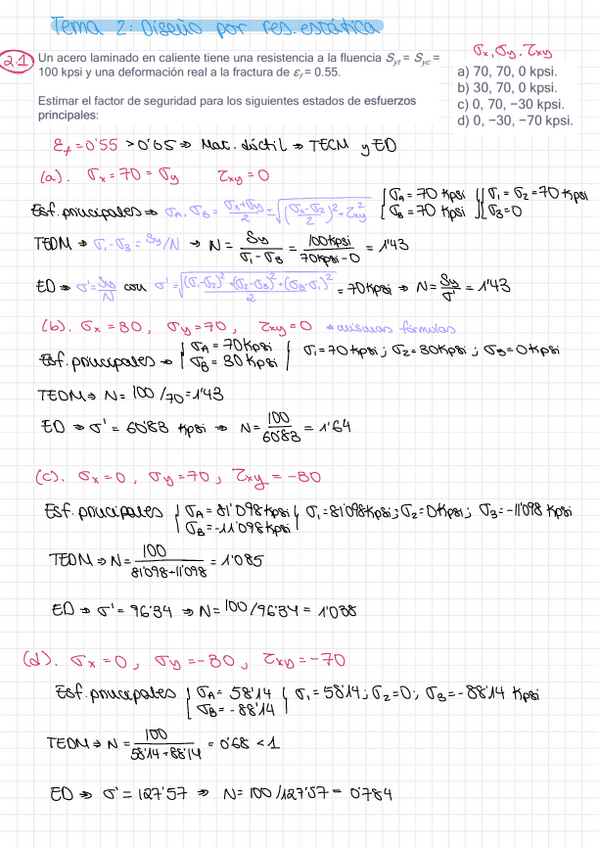 Tema 2: Diseño por res. estática
2.1 Un acero laminado en caliente tiene una resistencia a la fluencia Syt = Syc =
100 kpsi y una deformación real a la fractura de εf = 0.55.
Estimar el factor de seguridad para los siguientes estados de esfuerzos
principales:
σx, σy, τxy
a) 70, 70, 0 kpsi.
b) 30, 70, 0 kpsi.
c) 0, 70, −30 kpsi.
d) 0, −30, −70 kpsi.
εf = 0'55 > 0'05 ⇒ Mat. dúctil ⇒ TECM y ED
(a). σx = 70 = σy τxy = 0
Esf. principales ⇒ σA, σB = (σx+σy)/2 = √((σx-σz)/2)² + τxy² { σA = 70 Kpsi σB = 70 Kpsi } { σ1 = σ2 = 70 Kpsi σ3 = 0
TEDM ⇒ σ1 - σ3 = Sy/N → N = Sy/(σ1 - σ3) = 100kpsi/(70kpsi - 0) = 1'43
ED ⇒ σ' = Sy/N con σ' = √(((σ1-σ2)² + (σ2-σ3)² + (σ3-σ1)²)/2) = 70kpsi ⇒ N = Sy/σ' = 1'43
(b). σx = 30, σy = 70, τxy = 0 * mismas fórmulas
Esf. principales ⇒ { σA = 70 Kpsi σB = 30 Kpsi { σ1 = 70 Kpsi; σ2 = 30 Kpsi; σ3 = 0 Kpsi
TEDM ⇒ N = 100/70 = 1'43
ED ⇒ σ' = 60'83 Kpsi ⇒ N = 100/60'83 = 1'64
(c). σx = 0, σy = 70, τxy = -30
Esf. principales { σA = 81'098 Kpsi σB = -11'098 Kpsi { σ1 = 81'098 Kpsi; σ2 = 0 Kpsi; σ3 = -11'098 Kpsi
TEDM ⇒ N = 100/(81'098+11'098) = 1'085
ED ⇒ σ' = 96'34 ⇒ N = 100/96'34 = 1'038
(d). σx = 0, σy = -30, τxy = -70
Esf. principales { σA = 58'14 σB = -88'14 { σ1 = 58'14; σ2 = 0; σ3 = -88'14 Kpsi
TEDM ⇒ N = 100/(58'14+88'14) = 0'68 < 1
ED ⇒ σ' = 127'57 ⇒ N = 100/127'57 = 0'784